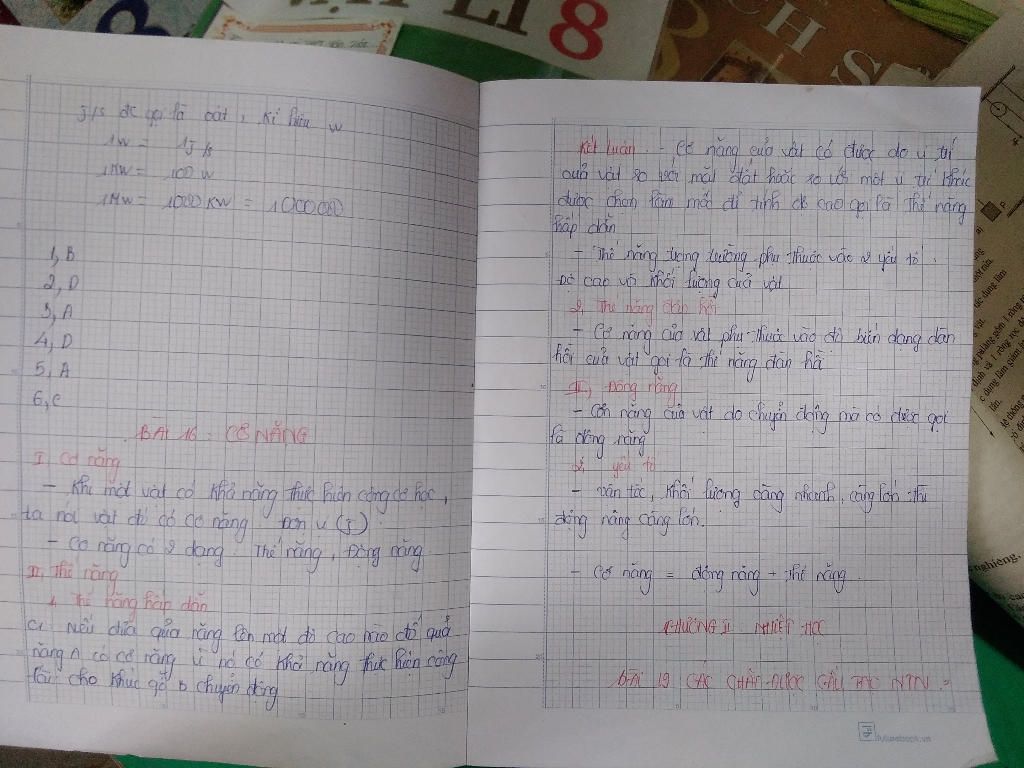 VẬT LÍ 8
J/s đc gọi là oát, kí hiệu W
1W = 1J/s
1KW = 100 W
1MW = 1000 KW = 1000000
1, B
2, D
3, A
4, D
5, A
6, C
BÀI 16: CƠ NĂNG
I, Cơ năng
- Khi một vật có khả năng thực hiện công cơ học,
ta nói vật đó có cơ năng. Đơn vị (J).
- Cơ năng có 2 dạng: Thế năng, Động năng
II, Thế năng
1, Thế năng hấp dẫn
C1 Nếu đưa quả nặng lên một độ cao nào đó quả
nặng A có cơ năng vì nó có khả năng thực hiện công
làm cho khúc gỗ B chuyển động
Kết luận - Cơ năng của vật có được do vị trí
của vật so với mặt đất hoặc so với một vị trí khác
được chọn làm mốc để tính độ cao gọi là thế năng
hấp dẫn
- Thế năng trọng trường phụ thuộc vào 2 yếu tố:
Độ cao và khối lượng của vật
2, Thế năng đàn hồi
- Cơ năng của vật phụ thuộc vào độ biến dạng đàn
hồi của vật gọi là thế năng đàn hồi
III, Động năng
- Cơn năng của vật do chuyển động mà có được gọi
là động năng
2, yếu tố
- Vận tốc, khối lượng càng nhanh, càng lớn thì
động năng càng lớn.
- Cơ năng = động năng + thế năng.
CHƯƠNG II: NHIỆT HỌC
BÀI 19 CÁC CHẤT ĐƯỢC CẤU TẠO NTN?
futurebook.vn
nghiêng,